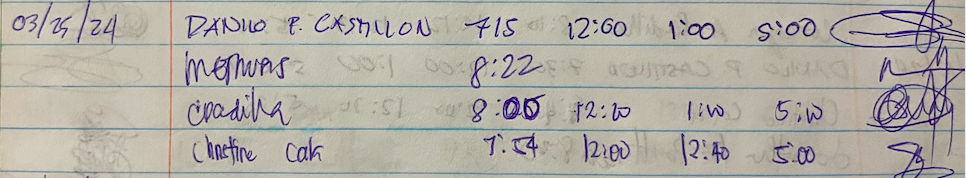 03/25/24 DANILO P. CASTILLON 715 12:00 1:00 5:00
8:22
8:05 12:10 1:10 5:10
Christine Cak 7:54 12:00 12:40 5:00